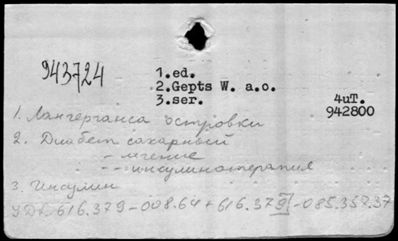 943724
1.ed.
2.Gepts W. a.o.
3.ser.
4uT.
942800
1. Лангерганса островки
2. Диабет сахарный
- лечение
-- инсулинотерапия
3. Инсулин
УДК 616.379-008.64+616.379]-085.357.37